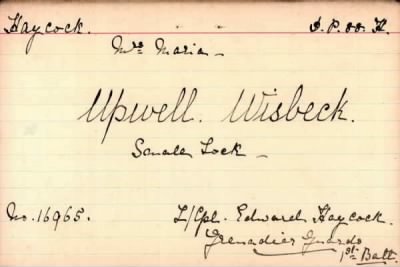 Haycock.
Mrs Maria -
Upwell. Wisbeck.
Lock -
No. 16965. L/Cpl. Edward Haycock.
Grenadier Guards
1st Batt.